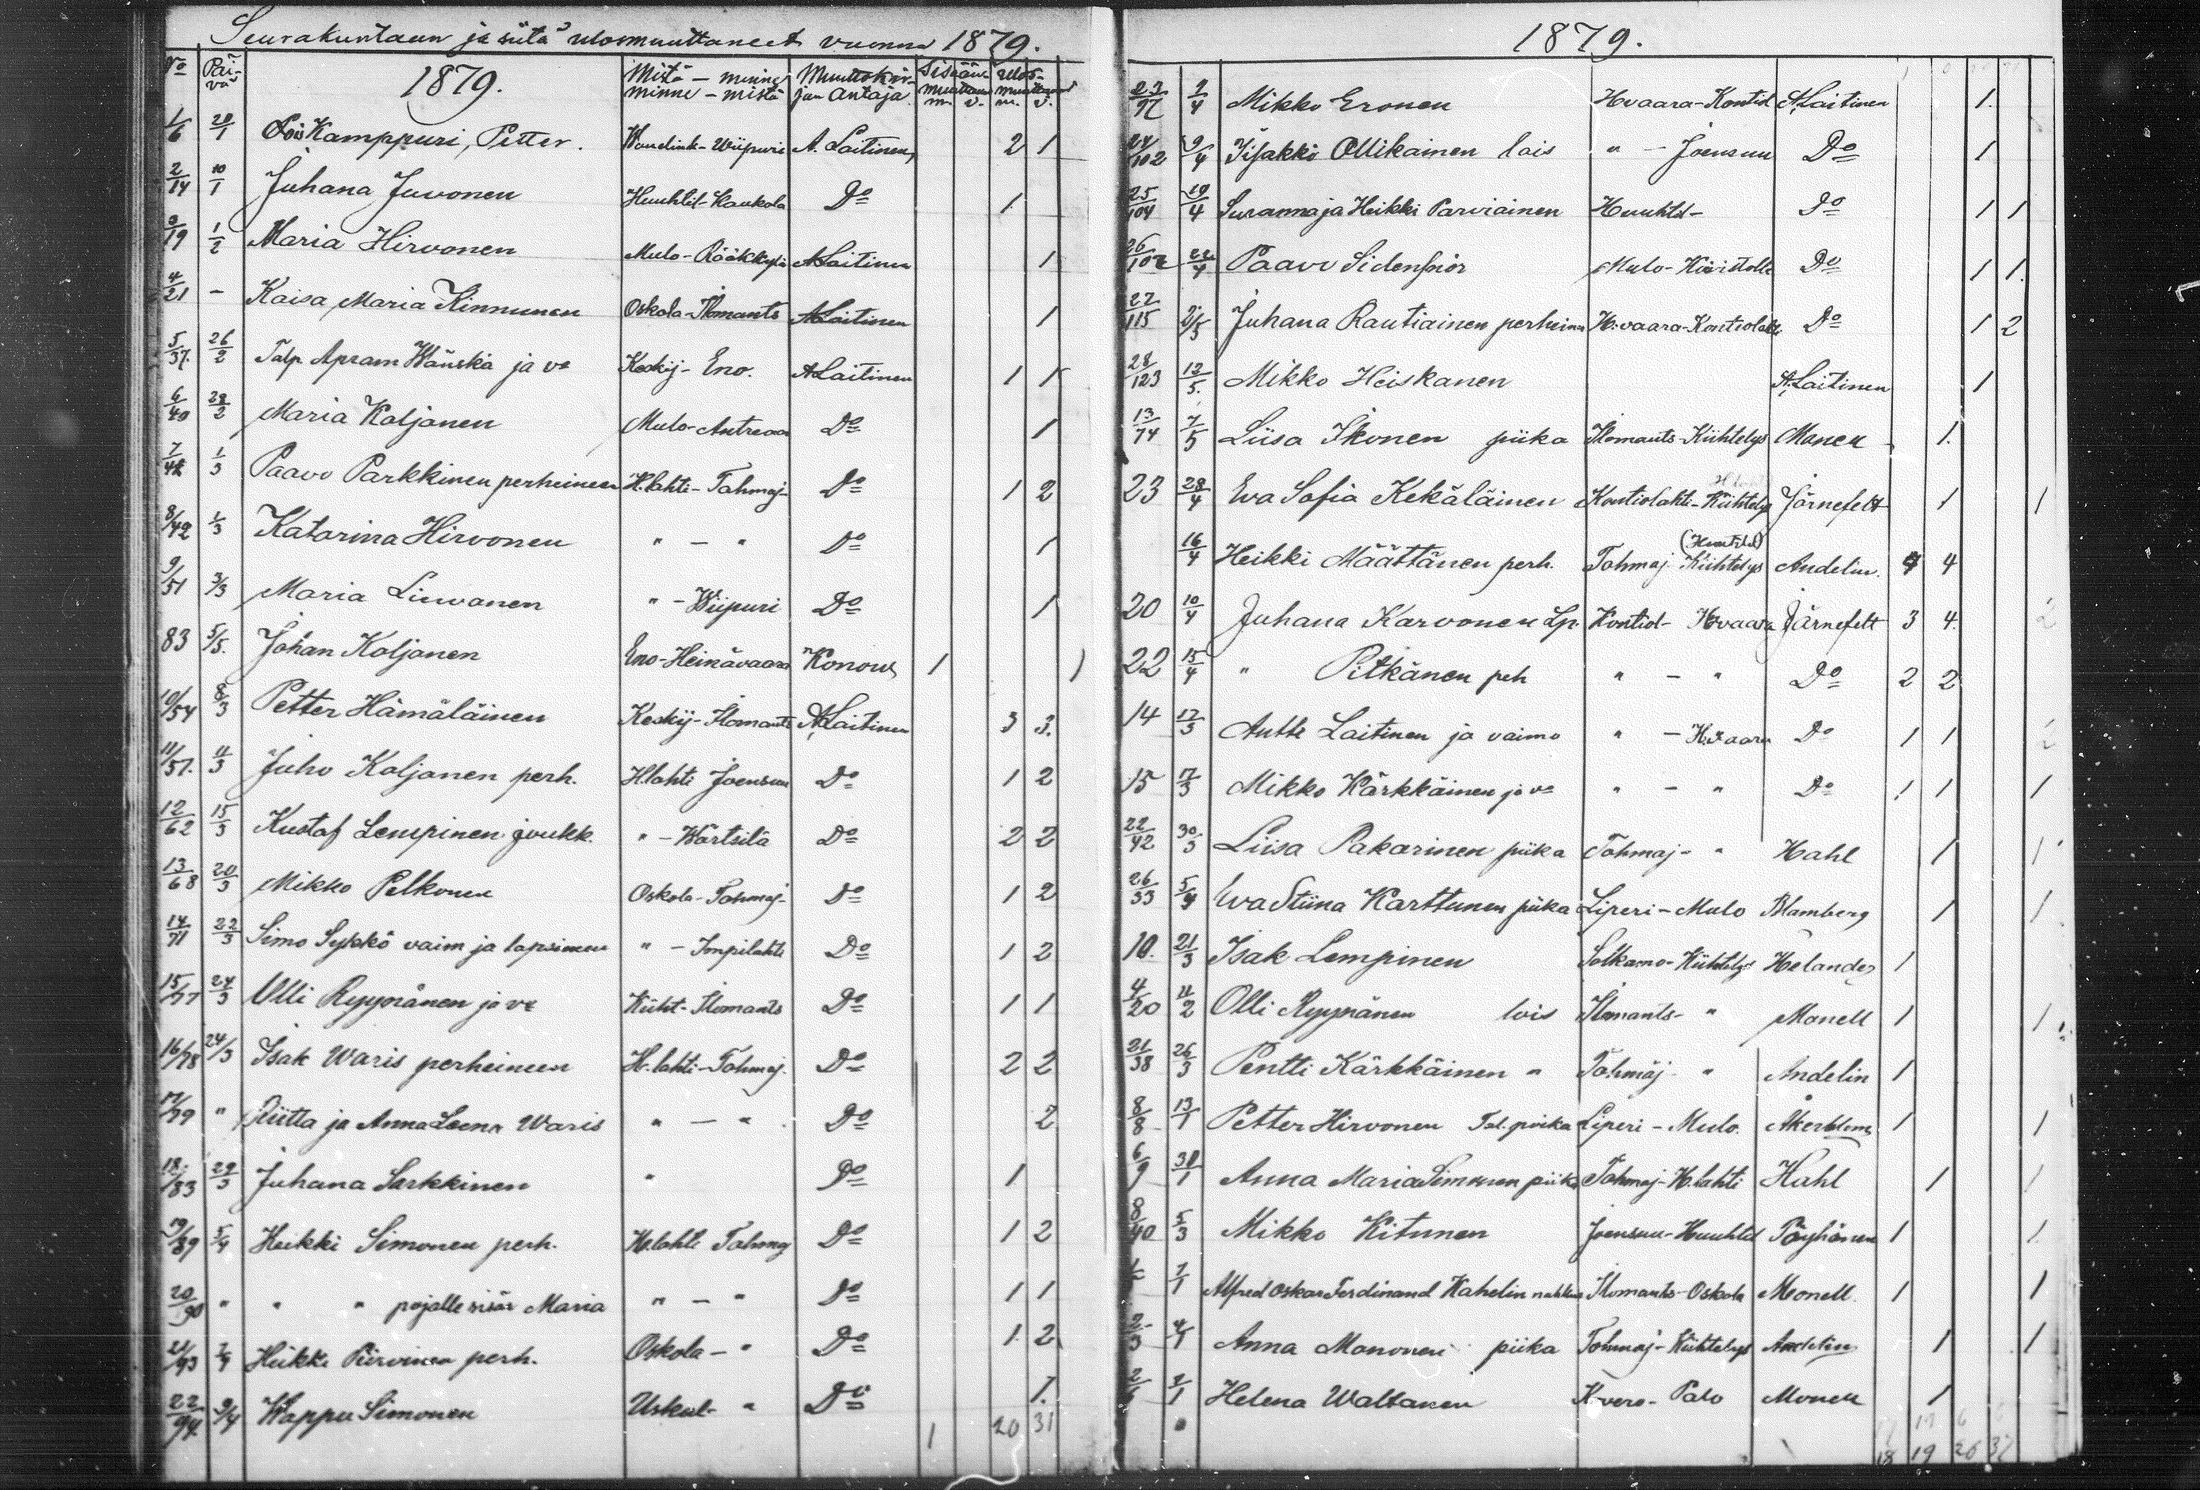 Seurakuntaan ja siitä ulosmuuttaneet vuonna 1879.
No Päivä 1879. Mistä - minne minne - mistä Muuttokirjan antaja Sisäänmuuttan. m. v. Ulosmuuttaneet m. v.
1/6 20/1 Lois Kamppuri, Petter. Wiipuri A. Laitinen 2 1
2/14 10/1 Juhana Juvonen Huuhtil-Kaukola Do 1
3/19 1/2 Maria Hirvonen Mulo-Rääkkylä A Laitinen 1
4/21 - Kaisa Maria Kinnunen Oskola-Ilomants A Laitinen 1
5/37. 26/2 Talp. Apram Wänskä ja vo Keskij-Eno. A Laitinen 1 1
6/40 28/2 Maria Koljonen Mulo-Antreaan Do 1
7/42 1/3 Paavo Parkkinen perheineen H.lahti-Tohmaj- Do 1 2
8/42 1/3 Katarina Hirvonen " - " Do 1
9/51 3/3 Maria Liuvanen " - Wiipuri Do 1
83 5/5. Johan Koljonen Eno-Heinävaara Konow 1 1
10/54 8/3 Petter Hämäläinen Keskij-Ilomants A. Laitinen 3 3.
11/57. 11/3 Juho Koljonen perh. H.lahti Joensuu Do 1 2
12/62 15/3 Kustaf Lempinen joukk. " - Wärtsilä Do 2 2
13/68 20/3 Mikko Pelkonen Oskola-Tohmaj- Do 1 2
14/71 22/3 Simo Sykkö vaim ja lapsineen " - Impilahti Do 1 2
15/77 24/3 Olli Ryynänen ja vo Kiiht-Ilomants Do 1 1
16/78 24/3 Isak Waris perheineen H.lahti-Tohmaj. Do 2 2
17/79 " Riitta ja Anna Leena Waris " - " Do 2
18/83 29/3 Juhana Sarkkinen " Do 1
19/89 5/4 Heikki Simonen perh. H.lahti Tohmaj Do 1 2
20/90 " " " pojalle sisär Maria " - " Do 1 1
21/93 7/4 Heikki Piirvinen perh. Oskola - " Do 1 2
22/94 9/4 Wappu Simonen Uskal- " Do 1.
1 20 31
1879.
23/97 9/4 Mikko Eronen H.vaara-Kontiol A. Laitinen 1.
24/102 9/4 Iisakki Ollikainen lois " - Joensuu Do 1
25/104 19/4 Susanna ja Heikki Parviainen Huuhtil- Do 1 1
26/107 22/4 Paavo Sidensnör Mulo- Do 1 1.
27/115 2/5 Juhana Rautiainen perheineen H.vaara-Kontiolaht. Do 1 2
28/123 12/5. Mikko Heiskanen A. Laitinen 1
13/74 7/5 Liisa Ikonen piika Ilomants-Kiihtelys Monell 1.
23 28/4 Eva Sofia Kekäläinen Kontiolahti-Kiihtelys Järnefelt 1 1
(Huuhtil)
16/4 Heikki Määttänen perh. Tohmaj Kiihtelys Andelin. 4 4
20 10/4 Juhana Karvonen Lp. Kontiol- H.vaara Järnefelt 3 4. 2
22 15/4 " Pitkänen peh " - " Do 2 2
14 17/3 Antti Laitinen ja vaimo " - H.vaara Do 1 1 2
15 17/3 Mikko Kärkkäinen ja vo " - " Do 1 1 1
22/42 30/3 Liisa Pakarinen piika Tohmaj- " Hahl 1 1
26/33 5/4 Eva Stiina Karttunen piika Liperi-Mulo Blomberg 1 1
10. 21/3 Isak Lempinen Sotkamo-Kiihtelys Helander 1
4/20 11/2 Olli Ryynänen lois Ilomants- " Monell 1 1
21/38 26/3 Pentti Kärkkäinen " Tohmaj- " Andelin 1
8/8 13/1 Petter Hirvonen Tal. poika Liperi-Mulo. Åkerblom 1 1
6/9 31/1 Anna Maria Simonen piika Tohmaj-H.lahti Hahl 1 1
8/40 5/3 Mikko Kitunen Joensuu-Huuhtil Pöyhönen 1 1
7/1 Alfred Oskar Ferdinand Kahelin Ilomants-Oskola Monell 1 1
2/3 4/1 Anna Mononen piika Tohmaj-Kiihtelys Andelin 1 1
3/1 Helena Waltanen K.vero-Palo Monell 1
18 19 26 32